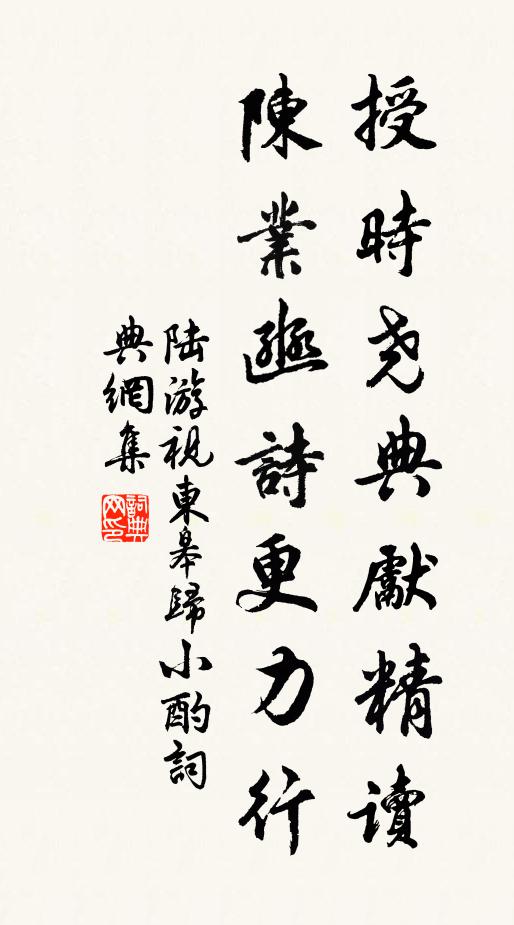 授時尧典獻精讀
陳業豳詩更力行
陆游視東皋歸小酌詞
典網集
詞典
网印